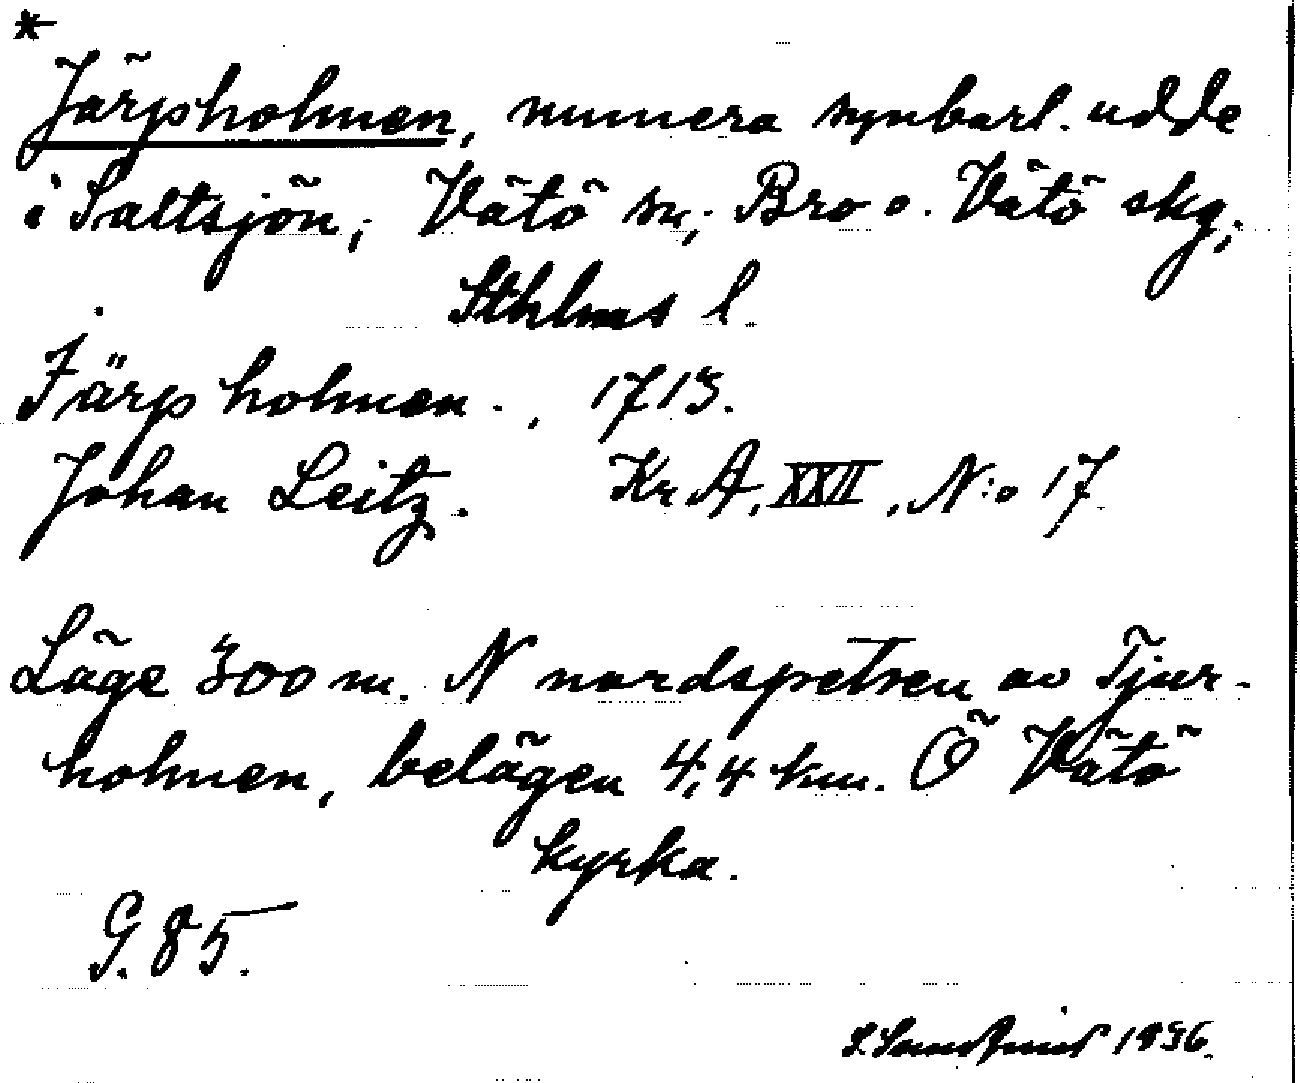 *
Järpsholmen, numera synbarl. udde
i Saltsjön, Vätö sn, Bro o. Vätö skg,
Sthlms l.
Järpsholmen., 1713.
Johan Leitz. Kr A, XXII, N:o 17
Läge 300 m. N nordspetsen av Tjur-
holmen, belägen 4,4 km. Ö Vätö
kyrka.
G. 85.
1936.